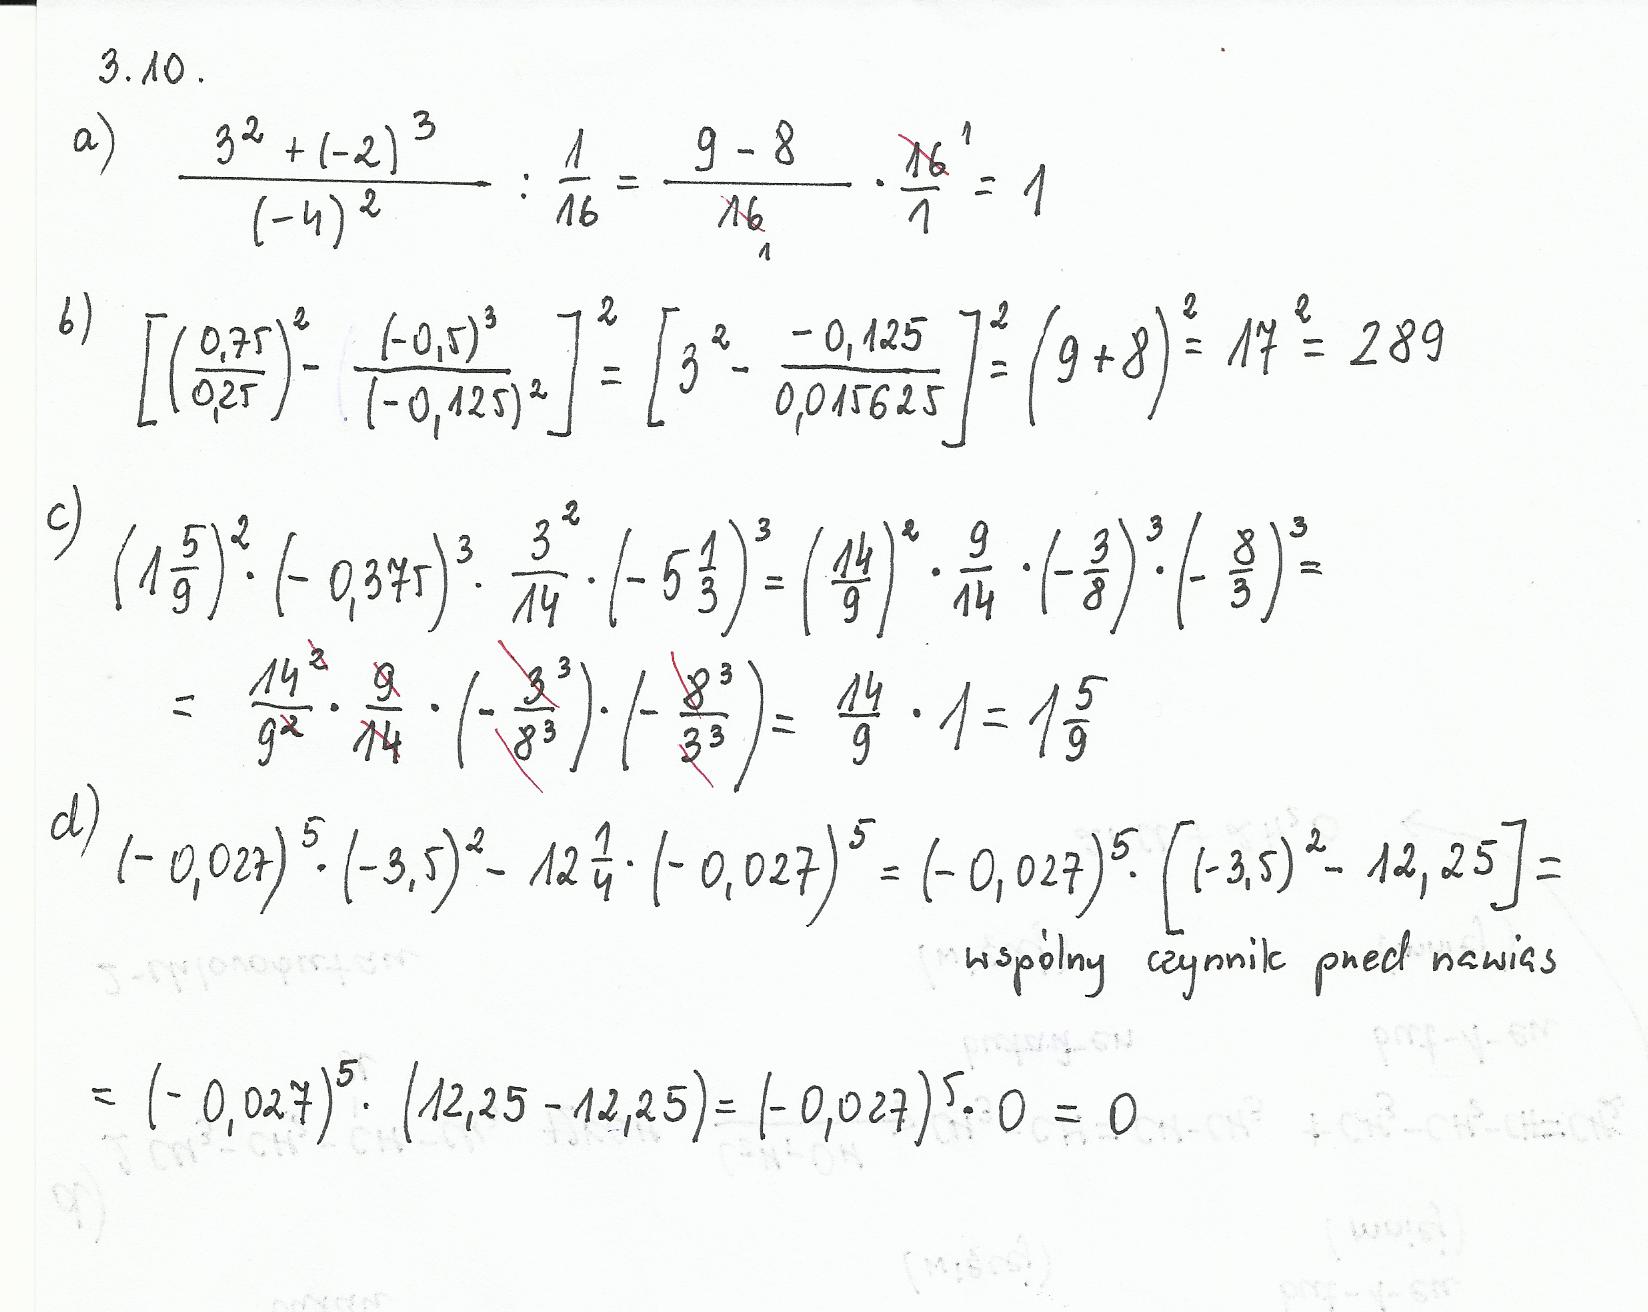 3.10.
a) (3² + (-2)³)/(-4)² : 1/16 = (9 - 8)/16 1 · 16 1/1 = 1
b) [(0,75/0,25)² - (-0,5)³/(-0,125)²]² = [3² - -0,125/0,015625]² = (9 + 8)² = 17² = 289
c) (1 5/9)² · (-0,375)³ · 3²/14 · (-5 1/3)³ = (14/9)² · 9/14 · (-3/8)³ · (-8/3)³ =
= 14²/9² · 9/14 · (-3³/8³) · (-8³/3³) = 14/9 · 1 = 1 5/9
d) (-0,027)⁵ · (-3,5)² - 12 1/4 · (-0,027)⁵ = (-0,027)⁵ · [(-3,5)² - 12,25] =
wspólny czynnik przed nawias
= (-0,027)⁵ · (12,25 - 12,25) = (-0,027)⁵ · 0 = 0